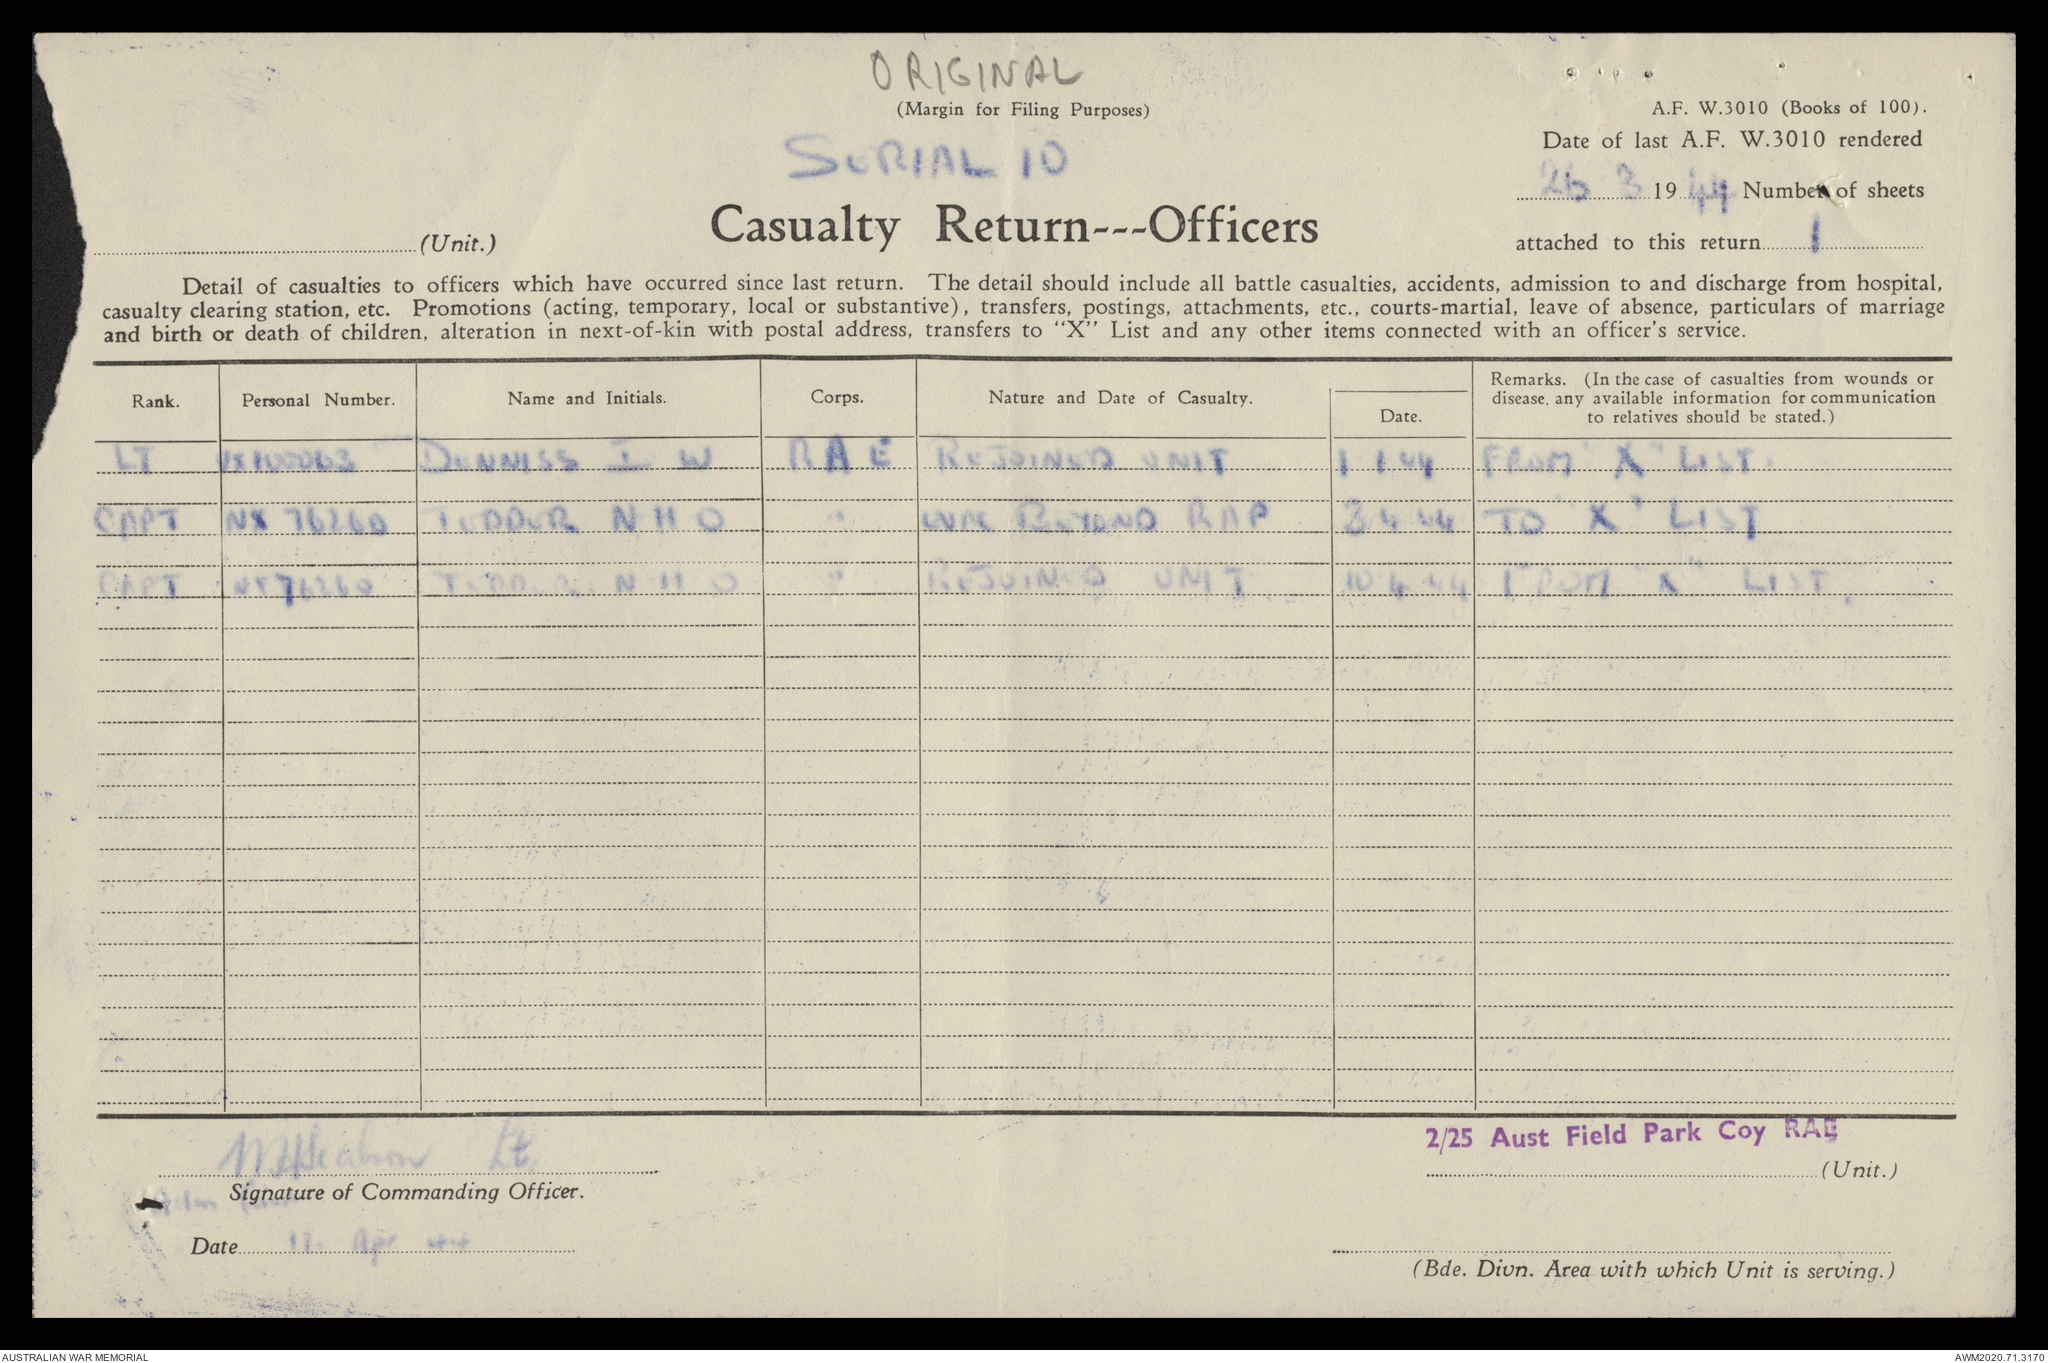 ORIGINAL
(Margin for Filing Purposes)
A.F. W.3010 (Books of 100).
SERIAL 10
Date of last A.F. W.3010 rendered
26 3 1944 Number of sheets
attached to this return 1
Casualty Return---Officers
(Unit.)
Detail of casualties to officers which have occurred since last return. The detail should include all battle casualties, accidents, admission to and discharge from hospital,
casualty clearing station, etc. Promotions (acting, temporary, local or substantive), transfers, postings, attachments, etc., courts-martial, leave of absence, particulars of marriage
and birth or death of children, alteration in next-of-kin with postal address, transfers to "X" List and any other items connected with an officer's service.
Rank. Personal Number. Name and Initials. Corps. Nature and Date of Casualty. Date. Remarks. (In the case of casualties from wounds or
disease, any available information for communication
to relatives should be stated.)
LT DENNISS I W RAE REJOINED UNIT 1 1 44 FROM "X" LIST.
CAPT NX 76260 TUDDUR N H O " EVAC BEYOND RAP 3 4 44 TO "X" LIST
CAPT NX76260 TUDDUR N H O " REJOINED UNIT. 10 4 44 FROM "X" LIST.
Lt.
Signature of Commanding Officer.
2/25 Aust Field Park Coy RAE
(Unit.)
Date Apr 44
(Bde. Divn. Area with which Unit is serving.)
AUSTRALIAN WAR MEMORIAL
AWM2020.71.3170